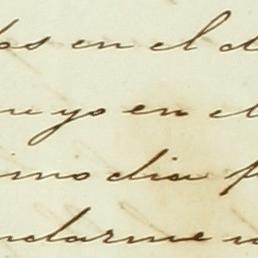 en el d
yo en el
imo dia p
ndarme u